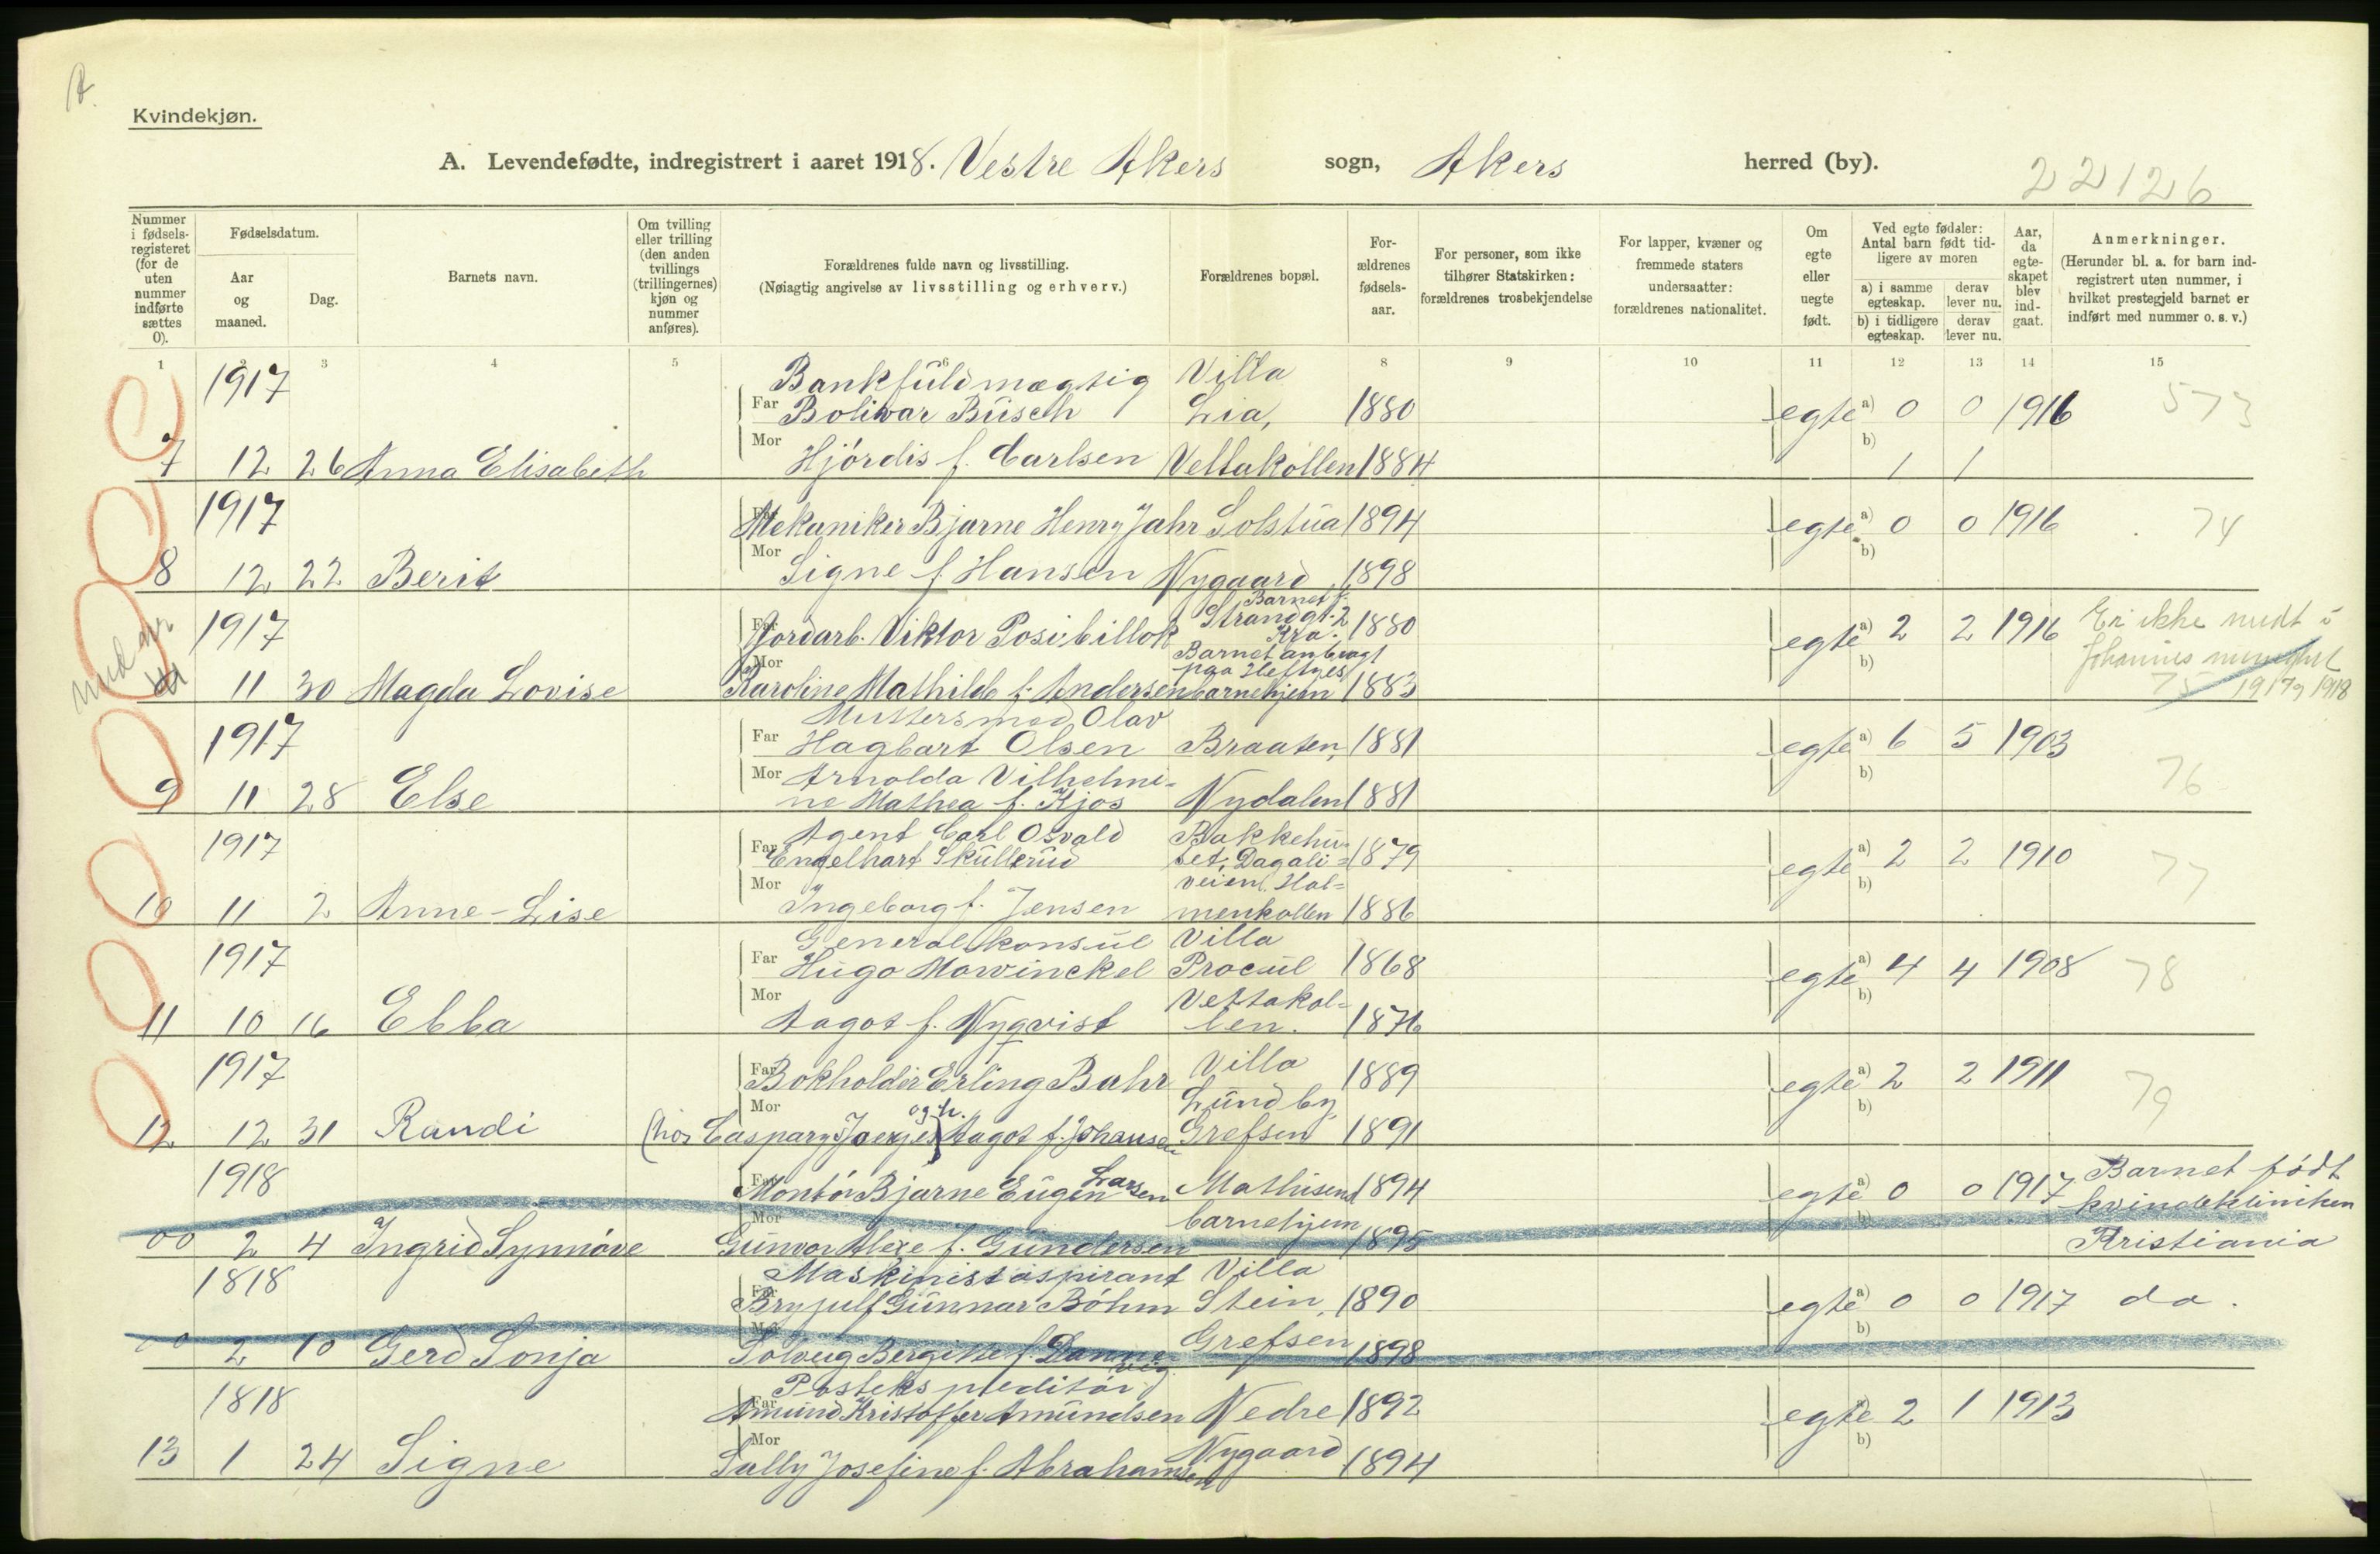 Kvindekjøn.
A. Levendefødte, indregistrert i aaret 1918. Vestre Akers sogn, Akers herred (by).
22126
Nummer i fødselsregisteret (for de uten nummer indførte sættes 0).
Fødselsdatum.
Aar og maaned.
Dag.
Barnets navn.
Om tvilling eller trilling (den anden tvillings (trillingernes) kjøn og nummer anføres).
Forældrenes fulde navn og livsstilling.
(Nøiagtig angivelse av livsstilling og erhverv.)
Forældrenes bopæl.
Forældrenes fødselsaar.
For personer, som ikke tilhører Statskirken: forældrenes trosbekjendelse
For lapper, kvæner og fremmede staters undersaatter: forældrenes nationalitet.
Om egte eller uegte født.
Ved egte fødsler: Antal barn født tidligere av moren
a) i samme egteskap. derav lever nu.
b) i tidligere egteskap. derav lever nu.
Aar, da egteskapet blev indgaat.
Anmerkninger.
(Herunder bl. a. for barn indregistrert uten nummer, i hvilket prestegjeld barnet er indført med nummer o. s. v.)
1 2 3 4 5 6 8 9 10 11 12 13 14 15
1917 Bankfuldmægtig Villa
Far Bolivar Büsch Lia, 1880 egte a) 0 0 1916 573
7 12 26 Anna Elisabeth Mor Hjørdis f. Carlsen Vettakollen 1884 b) 1 1
1917 Far Mekaniker Bjarne Henry Jahr Solstua 1894 egte a) 0 0 1916 74
8 12 22 Berit Mor Signe f. Hansen Nygaard 1898 b)
1917 Far Jordarb. Viktor Posibillok Barnet f. Strandgt. 2 Kra. 1880 egte a) 2 2 1916 Er ikke
11 30 Magda Lovise Mor Karoline Mathilde f. Andersen Barnet anbragt paa Heftyes barnehjem 1883 b) 75 1917 1918
1917 Far Hagbart Olsen Braaten, 1881 egte a) 6 5 1903
9 11 28 Else Mor Arnolda Vilhelmine Mathea f. Kjos Nydalen 1881 b) 76
1917 Far Agent Carl Osvald Engelhart Skullerud Bakkehuset, Dagaliveien, Holmenkollen 1879 egte a) 2 2 1910
10 11 2 Anne-Lise Mor Ingeborg f. Jensen 1886 b) 77
1917 Generalkonsul Villa
Far Hugo Mowinckel Procul 1868 egte a) 4 4 1908 78
11 10 16 Ebba Mor Aagot f. Nyqvist Vettakollen. 1876 b)
1917 Far Bokholder Erling Bahr Villa 1889 egte a) 2 2 1911
12 12 31 Randi Mor Aagot f. Johansen Lundby, Grefsen 1891 b) 79
1918 Far Montør Bjarne Eugen Larsen Mathisens 1894 egte a) 0 0 1917 Barnet født
00 2 4 Ingrid Synnøve Mor Gunvor Alexe f. Gundersen barnehjem 1895 b) kvindekliniken Kristiania
1818 Maskinistaspirant Villa
Far Brynjulf Gunnar Bøhm Stein, 1890 egte a) 0 0 1917 do.
00 2 10 Gerd Sonja Mor Solveig Bergitte f. Dannevig Grefsen 1898 b)
1818 Postekspeditør
Far Amund Kristoffer Amundsen Nedre 1892 egte a) 2 1 1913
13 1 24 Signe Mor Sally Josefine f. Abrahamsen Nygaard 1894 b)